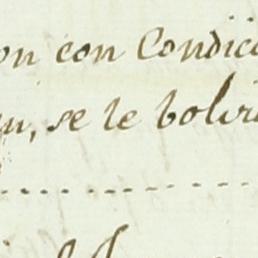 on con Condici
n, se le bolvi